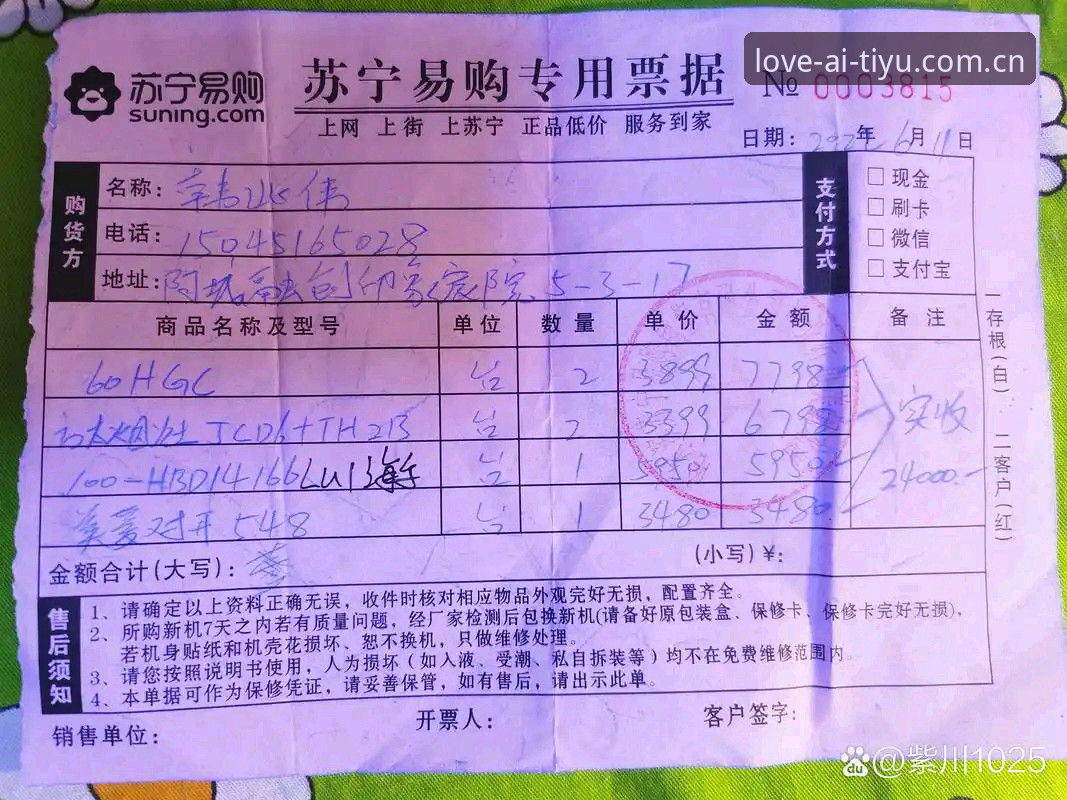 love-ai-tiyu.com.cn
苏宁易购
suning.com
苏宁易购专用票据
№ 0003815
上网 上街 上苏宁 正品低价 服务到家
日期: 年 6月 11日
购货方
名称:
电话: 15045165028
地址: 5-3-17
支付方式
□ 现金
□ 刷卡
□ 微信
□ 支付宝
商品名称及型号 单位 数量 单价 金额 备注
60HGC 台 2 3899 7798
JCD6+TH21B 台 2 3399 6798
100-HBD14166LU1 台 1 5950 5950
对开 548 台 1 3480 3480
实收
24000.-
金额合计(大写): (小写)¥:
售后须知
1、请确定以上资料正确无误，收件时核对相应物品外观完好无损，配置齐全。
2、所购新机7天之内若有质量问题，经厂家检测后包换新机(请备好原包装盒、保修卡、保修卡完好无损)，
若机身贴纸和机壳花损坏、恕不换机，只做维修处理。
3、请您按照说明书使用，人为损坏（如入液、受潮、私自拆装等）均不在免费维修范围内。
4、本单据可作为保修凭证，请妥善保管，如有售后，请出示此单。
销售单位: 开票人: 客户签字:
一存根(白) 二客户(红)
@紫川1025